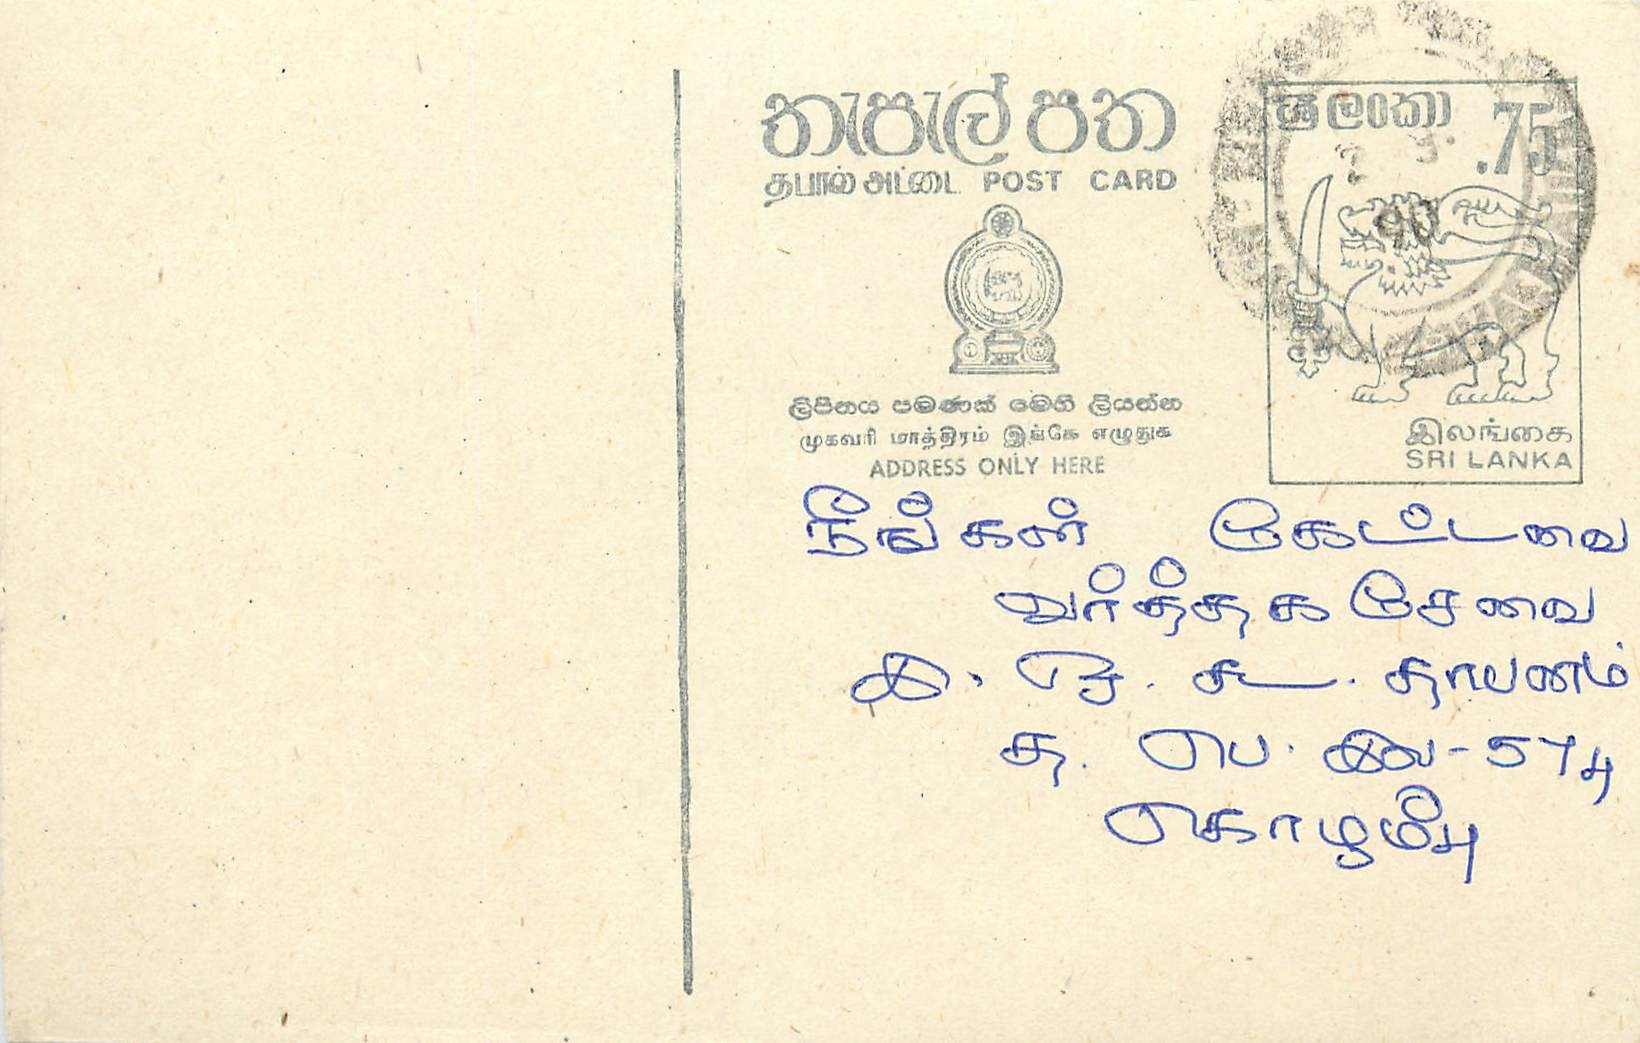 තැපැල් පත
தபால் அட்டை POST CARD
ශ්‍රී ලංකා .75
ලිපිනය පමණක් මෙහි ලියන්න
முகவரி மாத்திரம் இங்கே எழுதுக
ADDRESS ONLY HERE
இலங்கை
SRI LANKA
நீங்கள் கேட்டவை
வர்த்தக சேவை
இ. ஒ. கூ. தாபனம்
த. பெ. இல - 574
கொழம்பு